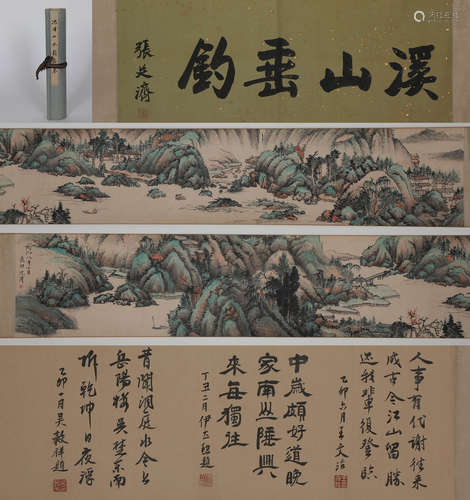 溪山垂釣
張廷濟
人事有代謝往來
成古今江山留勝
迹我輩復登臨
乙卯六月王文治
中歲頗好道晚
家南山陲興
來每獨往
丁丑二月伊立勳題
昔聞洞庭水今上
岳陽樓吳楚東南
坼乾坤日夜浮
乙卯一月吳穀祥題